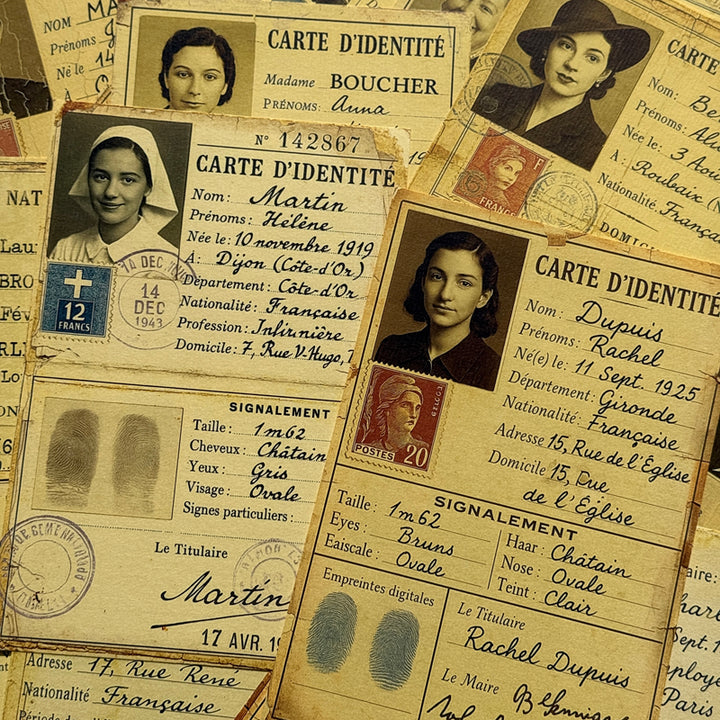 NOM MA
Prénoms
Né le : 14
CARTE D'IDENTITÉ
Madame BOUCHER
PRÉNOMS: Anna
CARTE
Nom:
Prénoms:
Née le: 3 Aou
À: Roubaix (N
Nationalité:
França
DOMIC
N° 142867
CARTE D'IDENTITÉ
Nom: Martin
Prénoms: Hélène
Née le: 10 novembre 1919
À: Dijon (Côte-d'Or)
Département: Côte-d'Or
Nationalité: Française
Profession: Infirinière
Domicile: 7, Rue V-Hugo, 7
12
FRANCS
14 DEC
14
DEC
1943
SIGNALEMENT
Taille : 1m62
Cheveux : Châtain
Yeux : Gris
Visage : Ovale
Signes particuliers :
Le Titulaire
Martin
17 AVR. 19
CARTE D'IDENTITÉ
Nom: Dupuis
Prénoms: Rachel
Né(e) le: 11 Sept. 1925
Département: Gironde
Nationalité: Française
Adresse 15, Rue de l'Église
Domicile 15, Due
de l'Église
POSTES 20
SIGNALEMENT
Taille : 1m62
Eyes : Bruns
Eaiscale : Ovale
Haar : Châtain
Nose : Ovale
Teint : Clair
Empreintes digitales
Le Titulaire
Rachel Dupuis
Le Maire
NAT
Lau
BRO
Fév
Adresse 17, Rue Rene
Nationalité Française
aire:
Sept. 1
ployé
Paris